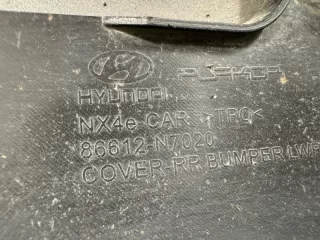 HYUNDAI
NX4e-CAR >TPO<
86612-N7020
COVER-RR BUMPER LWR